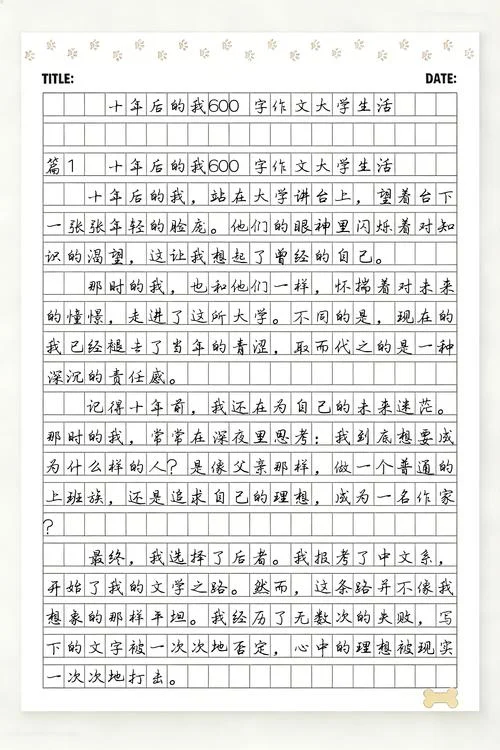 TITLE: DATE:
十年后的我600 字作文大学生活
篇1 十年后的我600 字作文大学生活
十年后的我，站在大学讲台上，望着台下
一张张年轻的脸庞。他们的眼神里闪烁着对知
识的渴望，这让我想起了曾经的自己。
那时的我，也和他们一样，怀揣着对未来
的憧憬，走进了这所大学。不同的是，现在的
我已经褪去了当年的青涩，取而代之的是一种
深沉的责任感。
记得十年前，我还在为自己的未来迷茫。
那时的我，常常在深夜里思考：我到底想要成
为什么样的人？是像父亲那样，做一个普通的
上班族，还是追求自己的理想，成为一名作家
？
最终，我选择了后者。我报考了中文系，
开始了我的文学之路。然而，这条路并不像我
想象的那样平坦。我经历了无数次的失败，写
下的文字被一次次地否定，心中的理想被现实
一次次地打击。